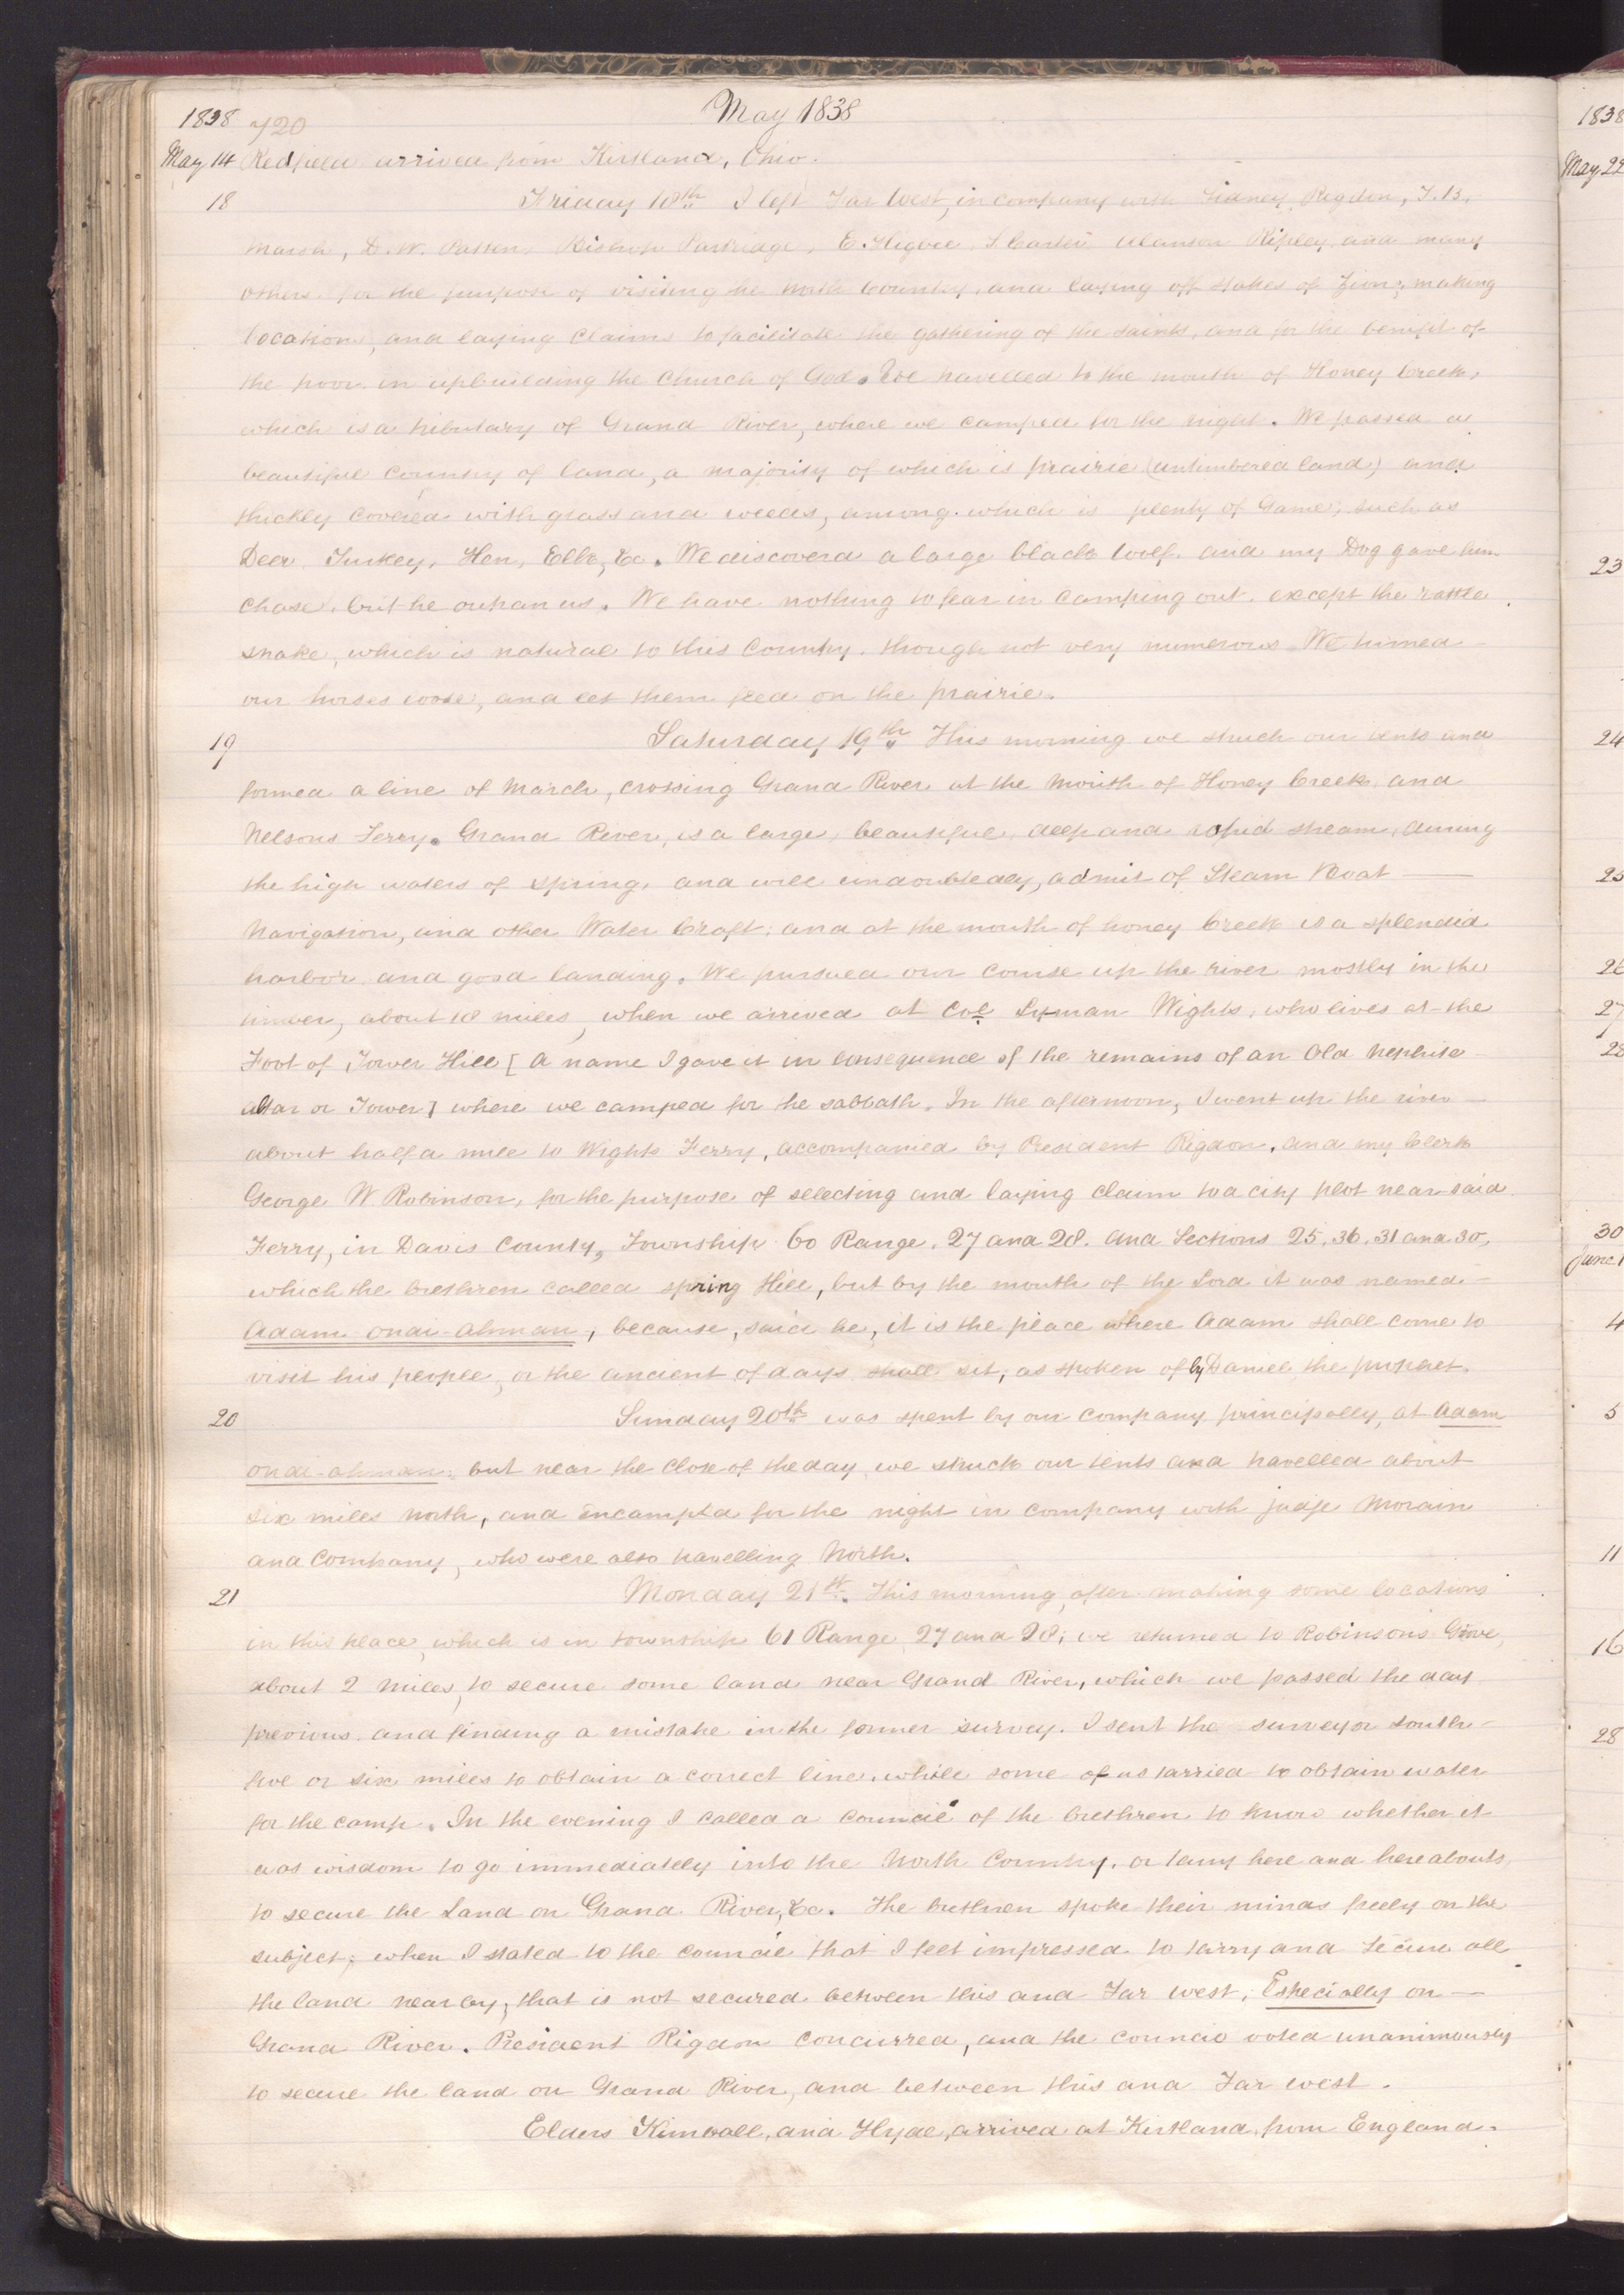 1838 420 May 1838
May 14 Redfield arrived from Kirtland, Ohio.
18 Friday 18th I left Far West, in company with Sidney Rigdon, T. B.
Marsh, D. W. Patten, Bishop Partridge, E. Higbee, S Carter, Alanson Ripley, and many
others, for the purpose of visiting the north Country, and laying off stakes of Zion; making
locations, and laying claims to facilitate the gathering of the saints, and for the benifit of
the poor, in upbuilding the Church of God. We travelled to the mouth of Honey Creek,
which is a tributary of Grand River, where we camped for the night. We passed a
beautiful country of land, a majority of which is prairie (untimbered land) and
thickly covered with grass and weeds, among which is plenty of Game, such as
Deer, Turkey, Hen, Elk, &c. We discoverd a large black wolf, and my Dog gave him
chase, but he outran us. We have nothing to fear in camping out, except the rattle
snake, which is natural to this Country, though not very numerous. We turned
our horses loose, and let them feed on the prairie.
19 Saturday 19th This morning we struck our tents and
formed a line of March, crossing Grand River at the Mouth of Honey Creek and
Nelsons Ferry. Grand River, is a large, beautiful, deep and rapid stream, during
the high waters of spring, and will undoubtedly, admit of Steam Boat —
Navigation, and other Water Craft; and at the mouth of honey Creek is a splendid
harbor and good landing. We pursued our course up the river mostly in the
timber, about 18 miles, when we arrived at Col. Lyman Wights, who lives at the
Foot of Tower Hill [A name I gave it in consequence of the remains of an Old Nephite
altar or Tower] where we camped for the sabbath. In the afternoon, I went up the river —
about half a mile to Wights Ferry, accompanied by President Rigdon, and my Clerk
George W Robinson, for the purpose of selecting and laying claim to a city plot near said
Ferry, in Davis County, Township 60 Range, 27 and 28. and Sections 25. 36. 31 and 30,
which the brethren called spring Hill, but by the mouth of the Lord it was named —
Adam ondi-Ahman, because, said he, it is the place where Adam shall come to
visit his people, or the ancient of days shall sit, as spoken of by Daniel the prophet.
20 Sunday 20th was spent by our company principally, at Adam
ondi-ahman; but near the close of the day, we struck our tents and travelled about
six miles north, and Encampted for the night in company with judge Morain
and Company, who were also travelling North.
21 Monday 21st. This morning, after making some locations
in this place, which is in township 61 Range 27 and 28; we returned to Robinsons Grove,
about 2 miles, to secure some land near Grand River, which we passed the day
previous, and finding a mistake in the former survey. I sent the surveyor south —
five or six miles to obtain a correct line, while some of us tarried to obtain water
for the camp. In the evening I called a council of the brethren to know whether it
was wisdom to go immediately into the North Country, or tarry here and hereabouts,
to secure the Land on Grand River, &c. The brethren spoke their minds freely on the
subject; when I stated to the council that I felt impressed to tarry and secure all
the land near by, that is not secured between this and Far west, Especially on —
Grand River. President Rigdon concurred, and the council voted unanimously
to secure the land on Grand River, and between this and Far west.
Elders Kimball, and Hyde, arrived at Kirtland, from England.
1838
May 22
23
24
25
26
27
28
30
June 1
4
5
11
16
28